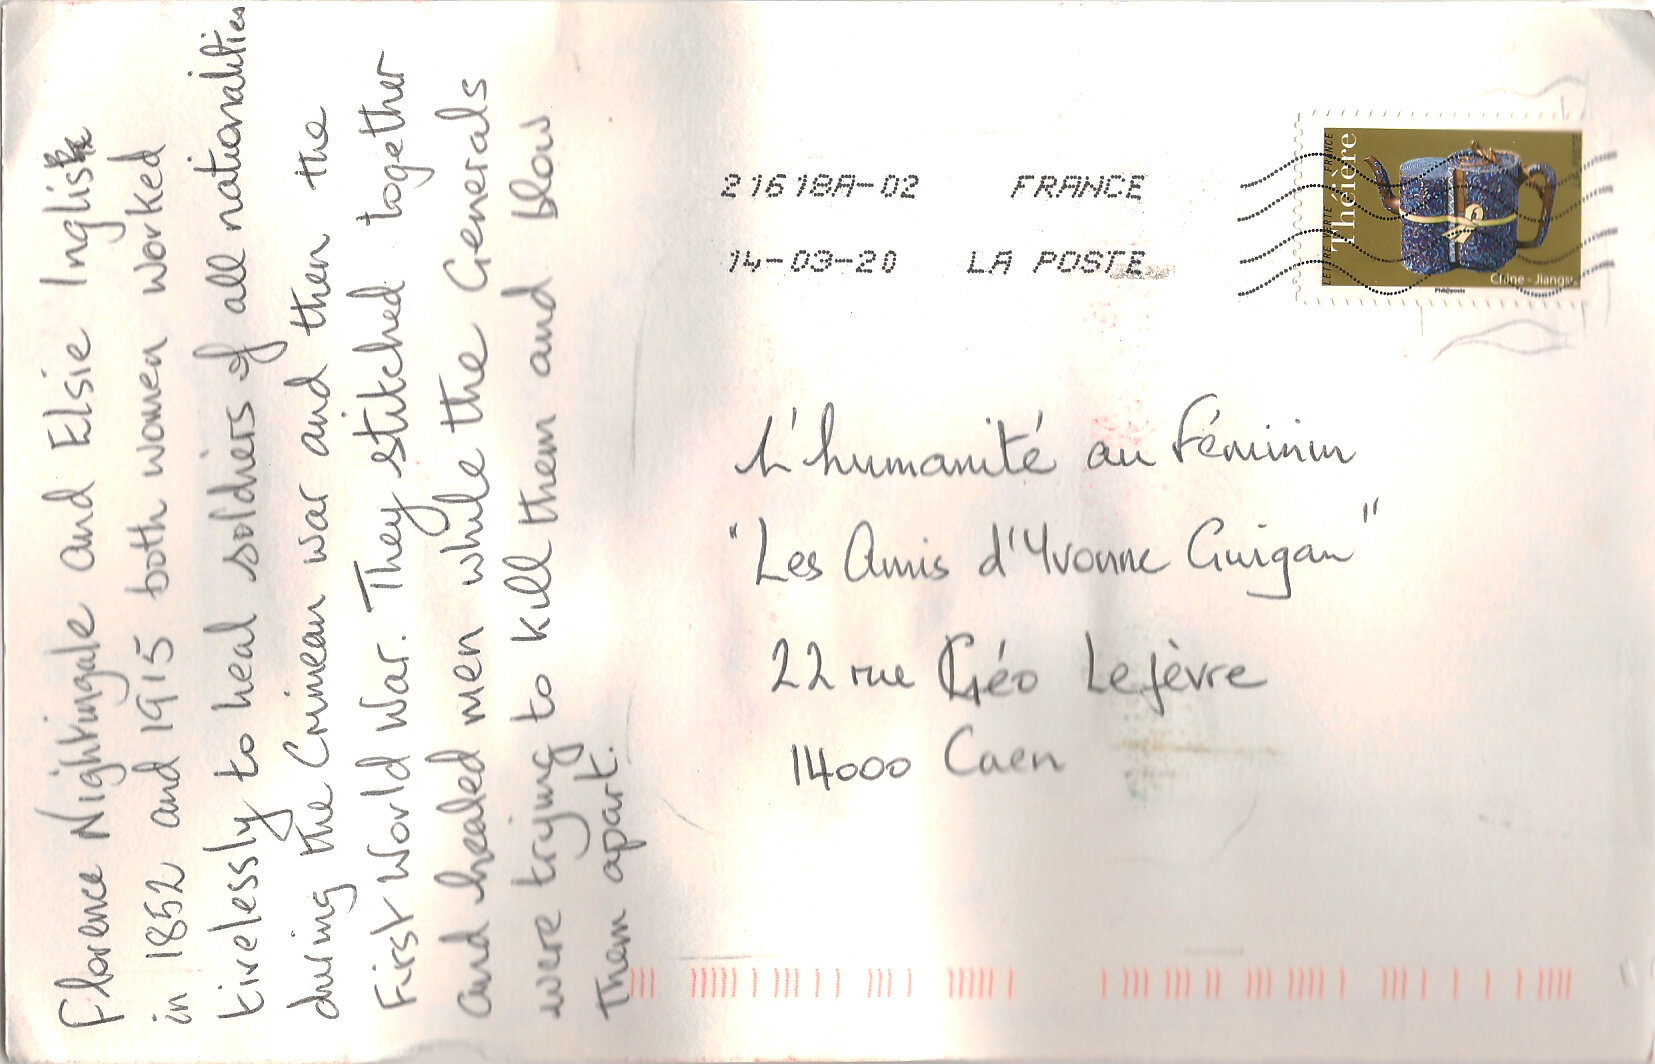 Florence Nightingale and Elsie Inglis
in 1852 and 1915 both women worked
tirelessly to heal soldiers of all nationalities
during the Crimean war and then the
First World War. They stitched together
and healed men while the Generals
were trying to kill them and blow
them apart.
21618A-02 FRANCE
14-03-20 LA POSTE
LETTRE VERTE FRANCE
Théière
Chine - Jiangsu
Phil@poste
L'humanité au féminin
"Les Amis d'Yvonne Guigan"
22 rue Géo Lefèvre
14000 Caen